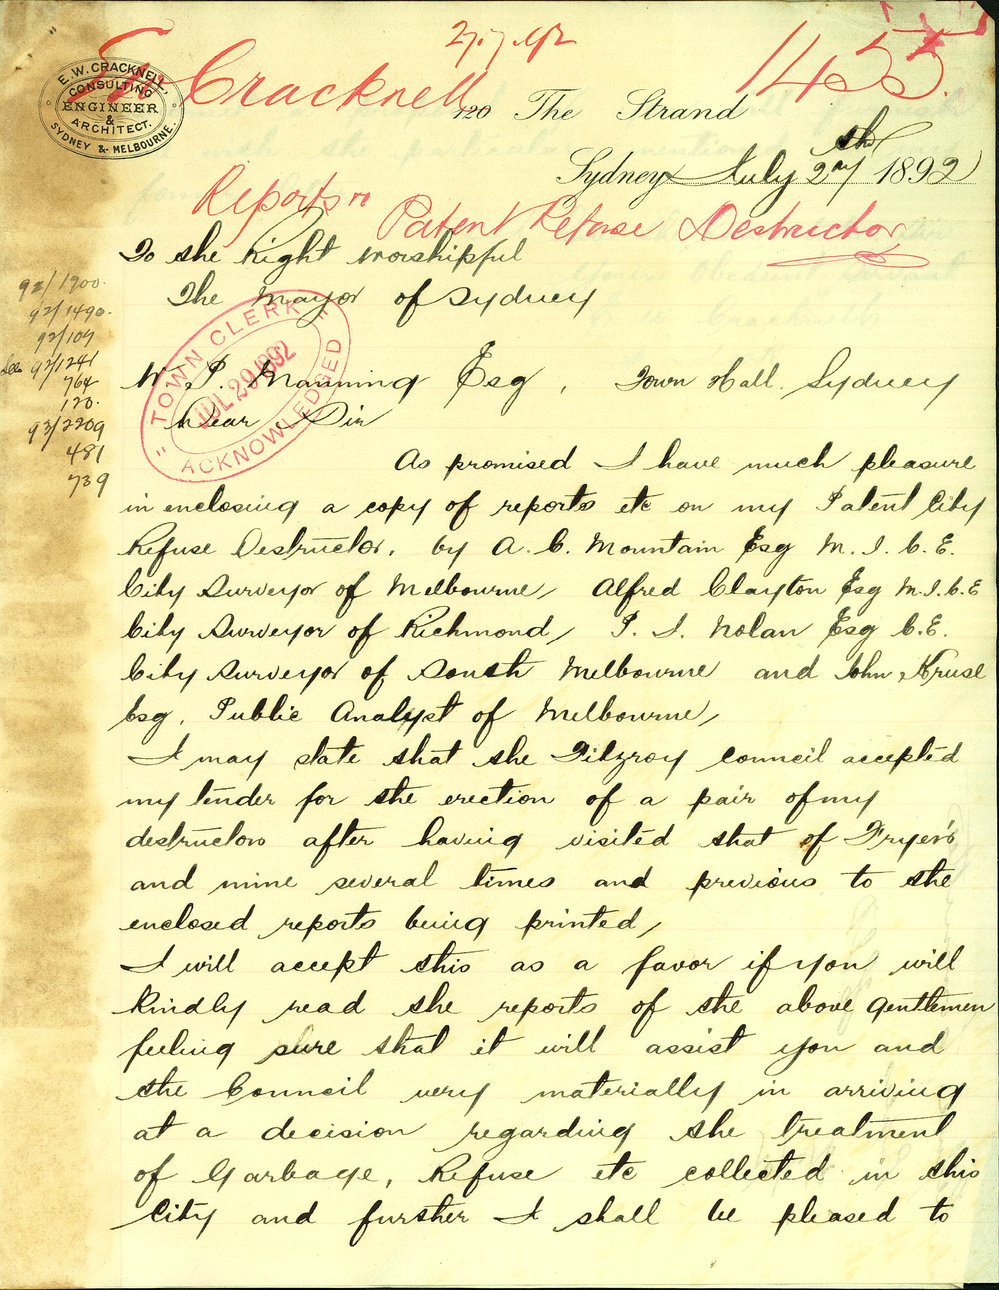 27.7.92
E W Cracknell 1455
E. W. CRACKNELL.
CONSULTING
ENGINEER
&
ARCHITECT.
SYDNEY & MELBOURNE.
120 The Strand
Sydney July 27th 1892
Reports on
Patent Refuse Destructor
To the Right Worshipful
The Mayor of Sydney
92/1900.
92/1490.
92/107
See 92/1241
764
120.
93/2209
481
739
"TOWN CLERK"
JUL 29 1892
ACKNOWLEDGED
W. P. Manning Esq, Town Hall. Sydney
Dear Sir
As promised I have much pleasure
in enclosing a copy of reports etc on my Patent City
Refuse Destructor, by A. C. Mountain Esq M. I. C. E.
City Surveyor of Melbourne, Alfred Clayton Esq M.I.C.E
City Surveyor of Richmond, P. I. Nolan Esq C.E.
City Surveyor of South Melbourne and John Kruse
Esq, Public Analyst of Melbourne,
I may state that the Fitzroy council accepted
my tender for the erection of a pair of my
destructors after having visited that of Fryer's
and mine several times and previous to the
enclosed reports being printed,
I will accept this as a favor if you will
kindly read the reports of the above gentlemen
feeling sure that it will assist you and
the Council very materially in arriving
at a decision regarding the treatment
of Garbage, Refuse etc collected in this
City and further I shall be pleased to